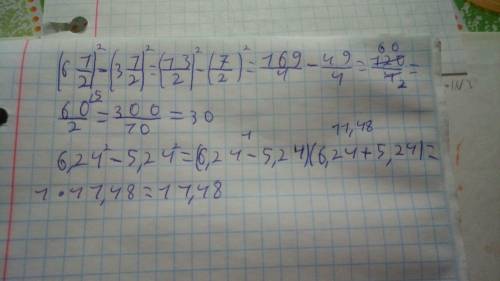 (6 1/2)² - (3 1/2)² = (13/2)² - (7/2)² = 169/4 - 49/4 = 60 120/4 2 =
60/2 5 = 300/10 = 30
6,24² - 5,24² = (6,24 - 5,24) 1 (6,24 + 5,24) 11,48 =
1 · 11,48 = 11,48